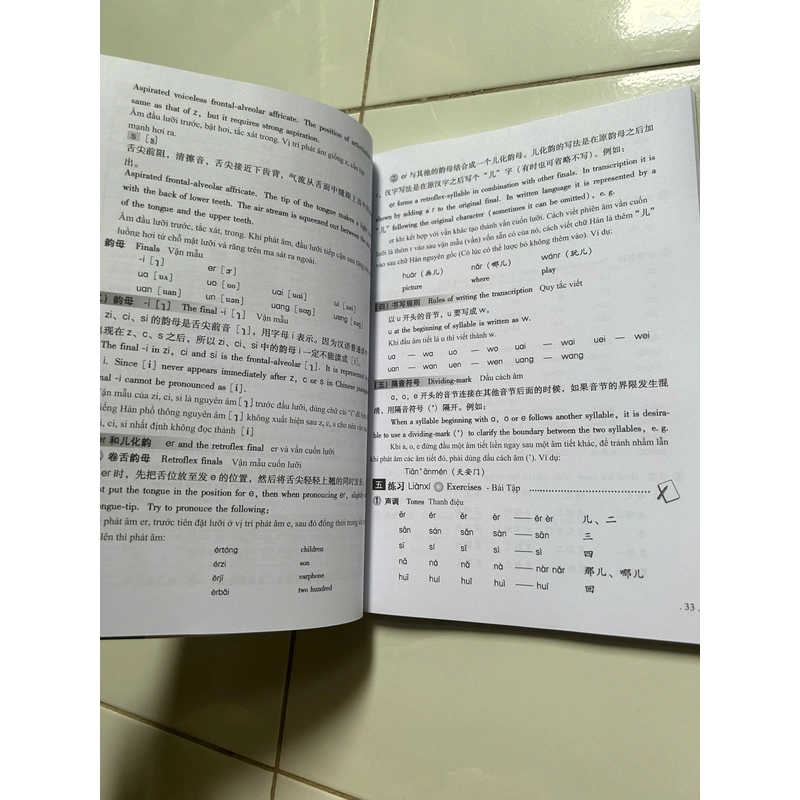 Aspirated voiceless frontal-alveolar affricate. The position of
same as that of z, but it requires strong aspiration.
Âm đầu lưỡi trước, bật hơi, tắc xát trong. Vị trí phát âm giống z, cần
mạnh hơi ra.
s [s]
舌尖前阻，清擦音，舌尖接近下齿背，气流从舌面中缝跟上
出。
Aspirated frontal-alveolar affricate. The tip of the tongue makes a
with the back of lower teeth. The air stream is squeezed out between the
of the tongue and the upper teeth.
Âm đầu lưỡi trước, tắc, xát, trong. Khi phát âm, đầu lưỡi tiếp cận sau
luồng hơi từ chỗ mặt lưỡi và răng trên ma sát ra ngoài.
韵母 Finals Vận mẫu
-i [ɿ] er [ɚ]
ua [uɑ] uo [uo] uai [uai] ui [uei]
uan [uan] un [uən] uang [uɑŋ] ueng [uəŋ]
) 韵母 -i [ɿ] The final -i [ɿ] Vận mẫu
zi, ci, si 的韵母是舌尖前音 [ɿ]，用字母 i 表示。因为汉语普通话
出现在 z、c、s 之后，所以 zi、ci、si 中的韵母 i 一定不能读成 [i]。
The final -i in zi, ci and si is the frontal-alveolar [ɿ]. It is represented
i. Since [i] never appears immediately after z, c or s in Chinese
nal -i cannot be pronounced as [i].
Vận mẫu của zi, ci, si là nguyên âm [ɿ] trước đầu lưỡi, dùng chữ cái "i" để
tiếng Hán phổ thông nguyên âm [ɿ] không xuất hiện sau z, c, s cho nên vận
i, ci, si nhất định không được đọc thành [i].
er 和儿化韵 er and the retroflex final er và vần cuốn lưỡi
卷舌韵母 Retroflex finals Vận mẫu cuốn lưỡi
er 时，先把舌位放至发 e 的位置，然后将舌尖轻轻上翘的同时发
put the tongue in the position for e, then when pronoucing er,
tongue-tip. Try to pronouce the following:
phát âm er, trước tiên đặt lưỡi ở vị trí phát âm e, sau đó đồng thời trong khi
lên thì phát âm:
értóng children
érzi son
ěrjī earphone
èrbǎi two hundred
② er 与其他的韵母结合成一个儿化韵母。儿化韵的写法是在原韵母之后加
r，汉字写法是在原汉字之后写个“儿”字（有时也可省略不写）。例如：
er forms a retroflex-syllable in combination with other finals. In transcription it is
shown by adding a r to the original final. In written language it is represented by a
"儿" following the original character (sometimes it can be omitted), e. g.
er khi kết hợp với vần khác tạo thành vần cuốn lưỡi. Cách viết phiên âm vần cuốn
lưỡi là thêm r vào sau vận mẫu (vần) vốn sẵn có của nó, cách viết chữ Hán là thêm "儿"
vào sau chữ Hán nguyên gốc (Có lúc có thể lược bỏ không thêm vào). Ví dụ:
huàr (画儿) nǎr (哪儿) wánr (玩儿)
picture where play
(四) 书写规则 Rules of writing the transcription Quy tắc viết
以 u 开头的音节，u 要写成 w。
u at the beginning of syllable is written as w.
Khi đầu âm tiết là u thì viết thành w.
ua — wa uo — wo uai — wai uei — wei
uan — wan uen — wen uang — wang
(五) 隔音符号 Dividing-mark Dấu cách âm
a, o, e 开头的音节连接在其他音节后面的时候，如果音节的界限发生混
淆，用隔音符号（'）隔开。例如：
When a syllable beginning with a, o or e follows another syllable, it is desira-
ble to use a dividing-mark (') to clarify the boundary between the two syllables, e. g.
Khi a, o, e đứng đầu một âm tiết liền ngay sau một âm tiết khác, để tránh nhầm lẫn
khi phát âm các âm tiết đó, phải dùng dấu cách âm ('). Ví dụ:
Tiān'ānmén (天安门)
五 练习 Liànxí Exercises - Bài Tập
① 声调 Tones Thanh điệu
ēr ér ěr èr — ér èr 儿、二
sān sán sǎn sàn — sān 三
sī sí sǐ sì — sì 四
nā ná nǎ nà — nàr nǎr 那儿、哪儿
huī huí huǐ huì — huí 回
. 33 .